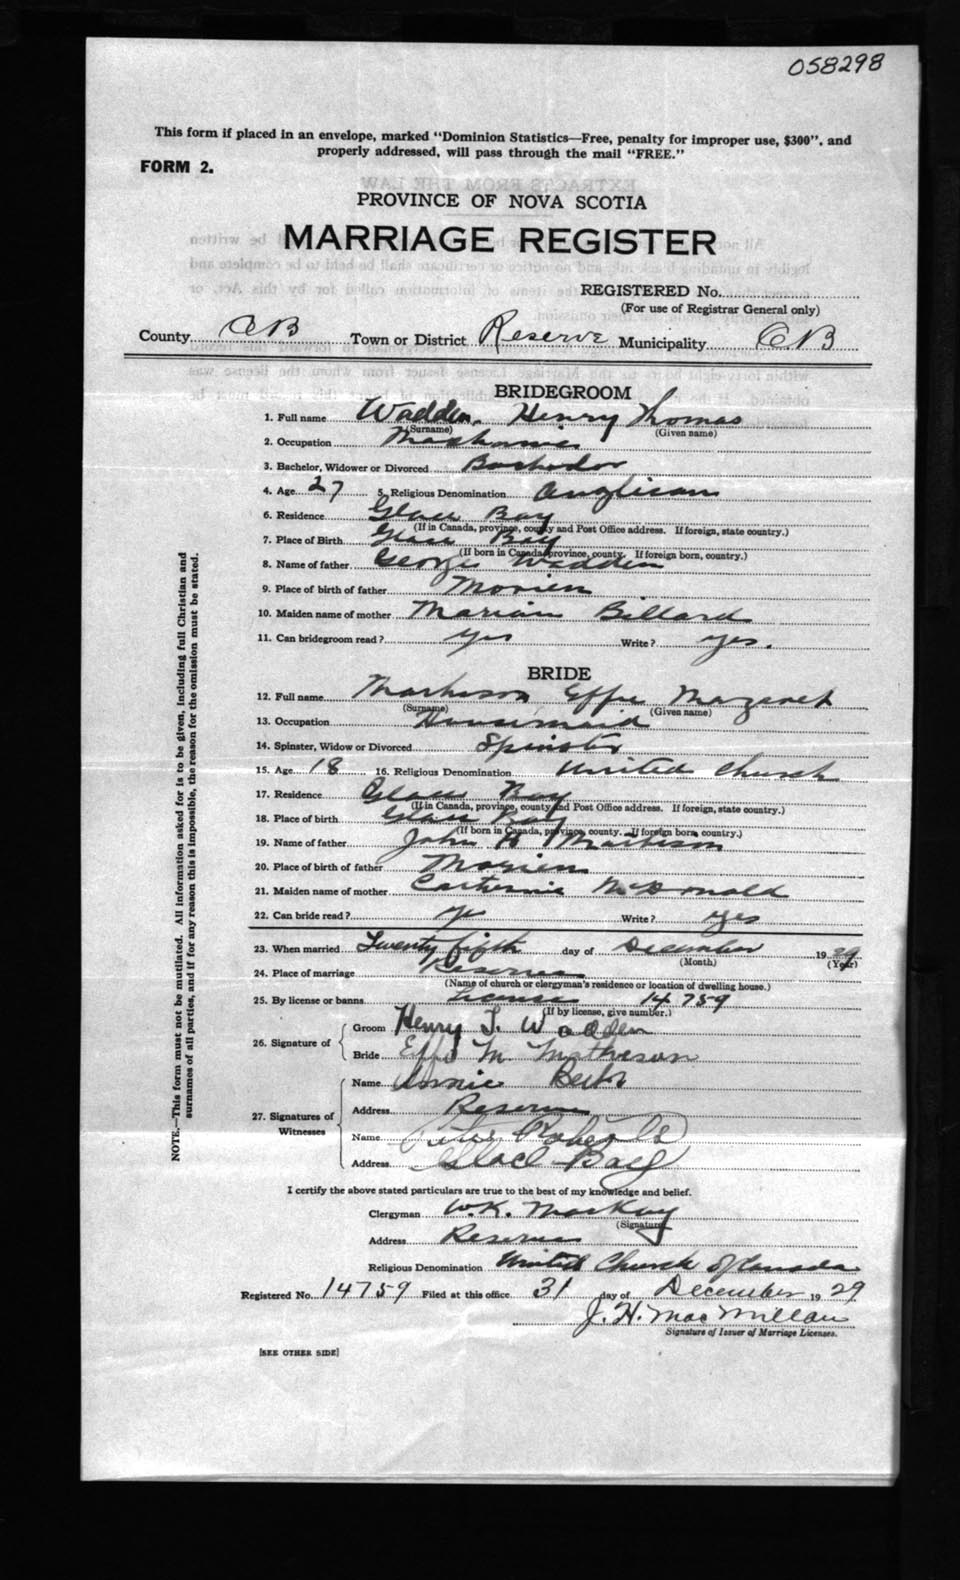 058298
This form if placed in an envelope, marked "Dominion Statistics—Free, penalty for improper use, $300", and
properly addressed, will pass through the mail "FREE."
FORM 2.
PROVINCE OF NOVA SCOTIA
MARRIAGE REGISTER
REGISTERED No.
(For use of Registrar General only)
County CB Town or District Reserve Municipality CB
BRIDEGROOM
1. Full name Wadden, Henry Thomas
(Surname) (Given name)
2. Occupation
3. Bachelor, Widower or Divorced Bachelor
4. Age 27 5. Religious Denomination Anglican
6. Residence Glace Bay
(If in Canada, province, county and Post Office address. If foreign, state country.)
7. Place of Birth Glace Bay
(If born in Canada, province, county. If foreign born, country.)
8. Name of father George Wadden
9. Place of birth of father Morien
10. Maiden name of mother Marian Billard
11. Can bridegroom read? yes Write? yes.
BRIDE
12. Full name Matheson Effie Margaret
(Surname) (Given name)
13. Occupation Housemaid
14. Spinster, Widow or Divorced Spinster
15. Age 18 16. Religious Denomination United Church
17. Residence Glace Bay
(If in Canada, province, county and Post Office address. If foreign, state country.)
18. Place of birth Glace Bay
(If born in Canada, province, county. If foreign born, country.)
19. Name of father John A Matheson
20. Place of birth of father Morien
21. Maiden name of mother Catherine McDonald
22. Can bride read? yes Write? yes
23. When married Twenty fifth day of December 1929
(Month) (Year)
24. Place of marriage Reserve
(Name of church or clergyman's residence or location of dwelling house.)
25. By license or banns License 14759
(If by license, give number.)
26. Signature of Groom Henry T. Wadden
Bride Effie M. Matheson
27. Signatures of Witnesses Name Annie
Address Reserve
Name
Address Glace Bay
I certify the above stated particulars are true to the best of my knowledge and belief.
Clergyman W.K. MacKay
(Signature)
Address Reserve
Religious Denomination United Church of Canada
Registered No. 14759 Filed at this office 31 day of December 1929
J. H. MacMillan
Signature of Issuer of Marriage Licenses.
[SEE OTHER SIDE]
NOTE.—This form must not be mutilated. All information asked for is to be given, including full Christian and
surnames of all parties, and if for any reason this is impossible, the reason for the omission must be stated.